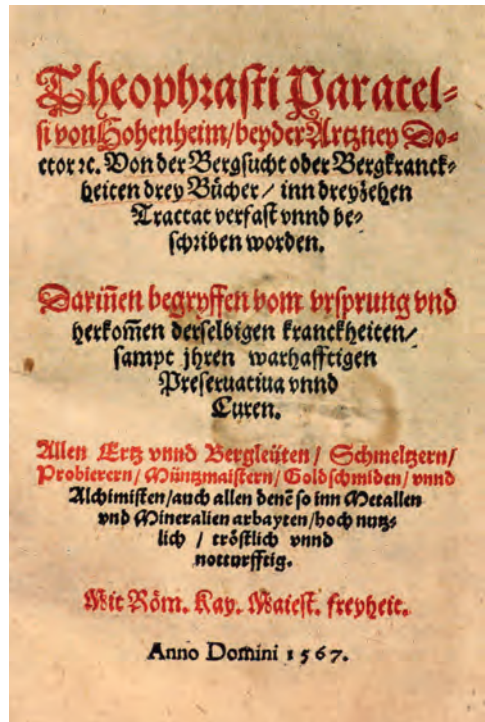 Theophrasti Paracel-
si von Hohenheim/beyder Artzney Do-
ctor ꝛc. Von der Bergsucht oder Bergkranck-
heiten drey Bücher/ inn dreyzehen
Tractat verfast vnnd be-
schriben worden.
Dariñen begryffen vom vrsprung vnd
herkom̃en derselbigen kranckheiten/
sampt jhren warhafftigen
Preseruatiua vnnd
Curen.
Allen Ertz vnnd Bergleüten/ Schmeltzern/
Probierern/ Müntzmaistern/ Goldschmiden/ vnnd
Alchimisten/auch allen denẽ so inn Metallen
vnd Mineralien arbayten/hoch nutz-
lich / tröstlich vnnd
notturfftig.
Mit Röm. Kay. Maiest. freyheit.
Anno Domini 1567.